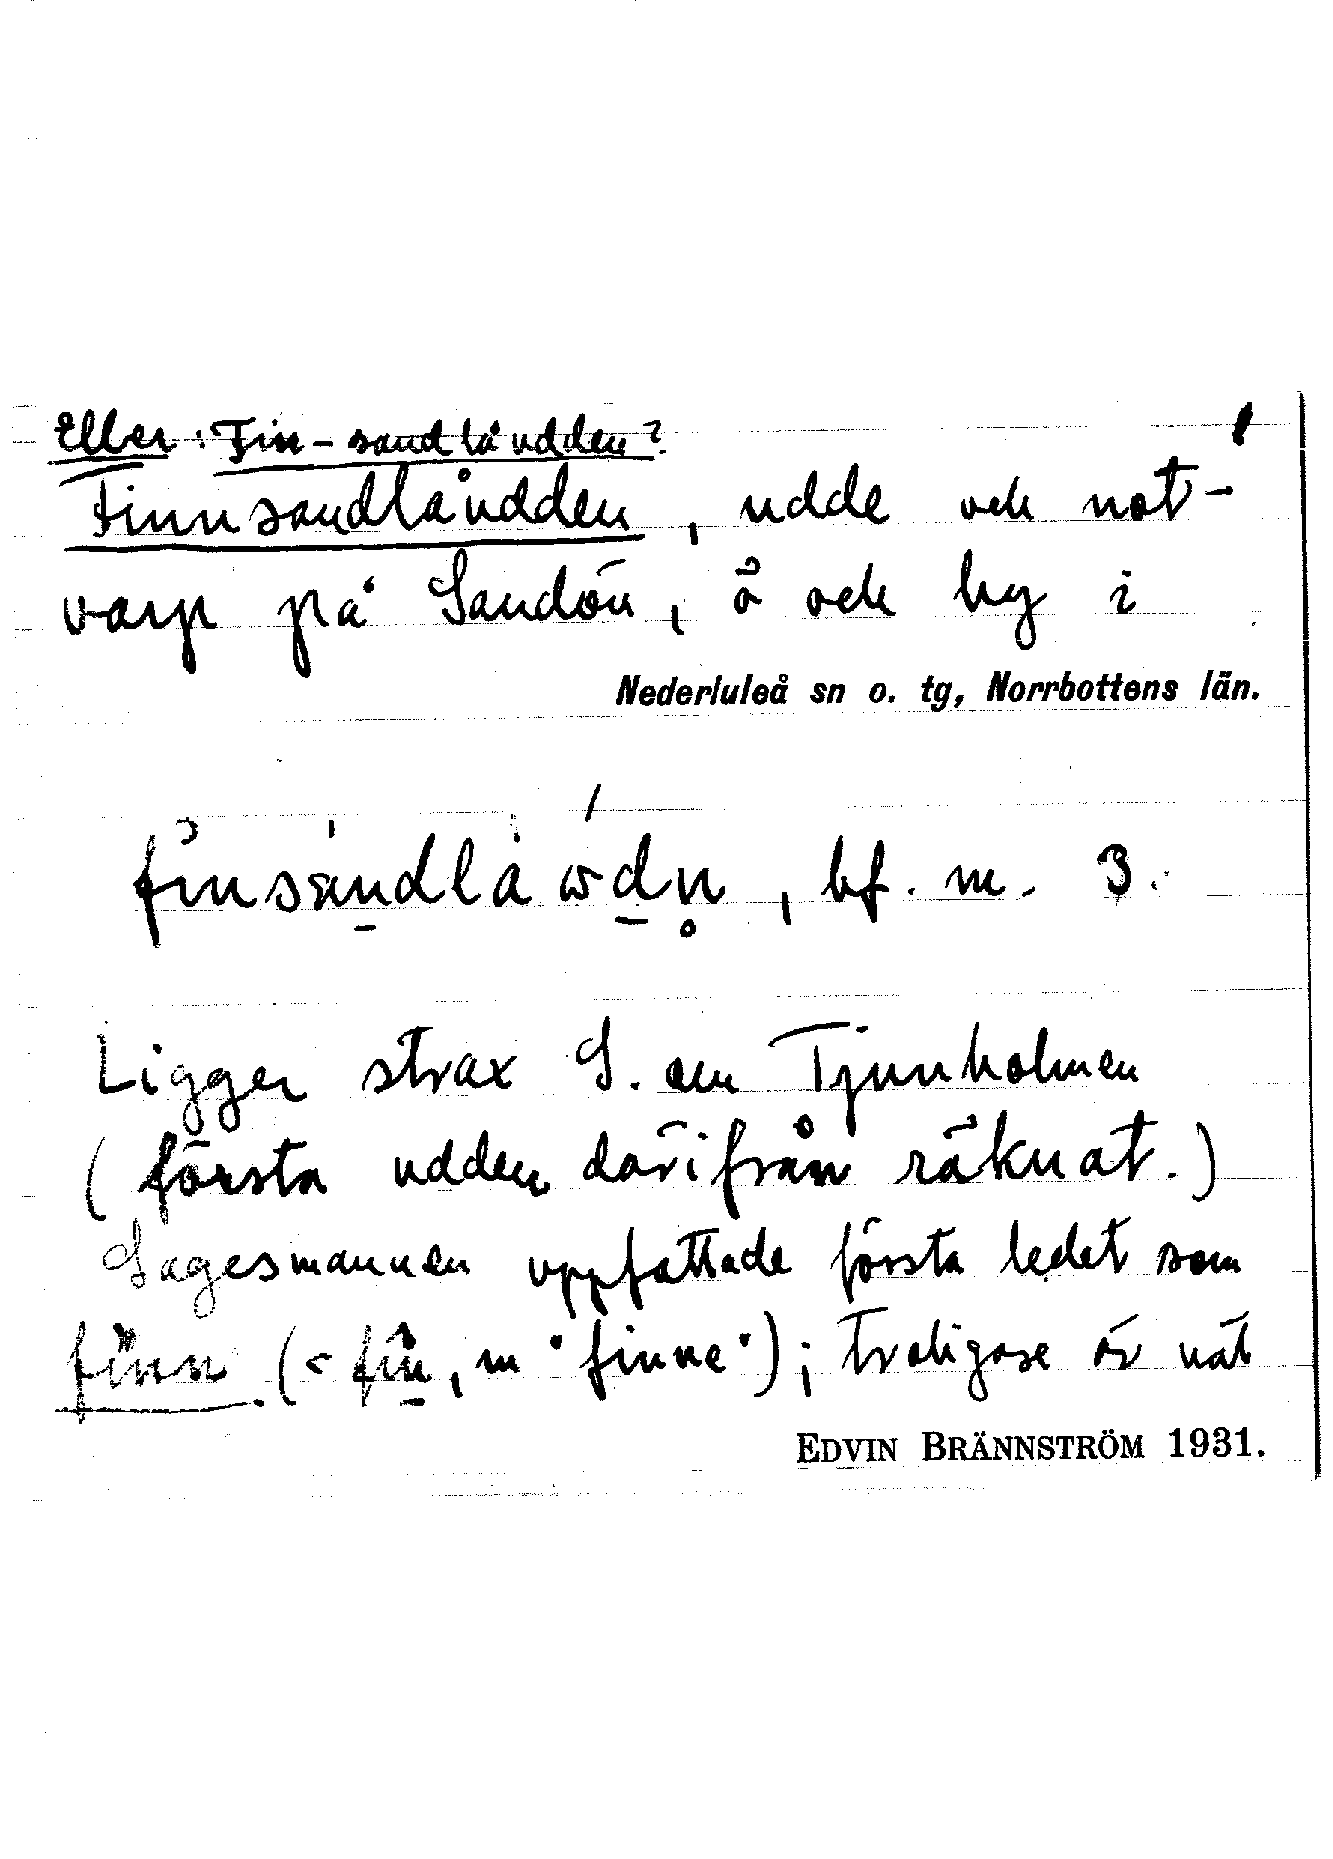 Eller: Fin-sandlåudden?
Finnsandlåudden, udde och not-
varp på Sandön, ö och by i
Nederluleå sn o. tg, Norrbottens län.
bf. m. 3.
Ligger strax S. om Tjuvholmen
(första udden därifrån räknat.)
Sagesmannen uppfattade första ledet som
finn (< fin, m "finne"); troligare är väl
EDVIN BRÄNNSTRÖM 1931.